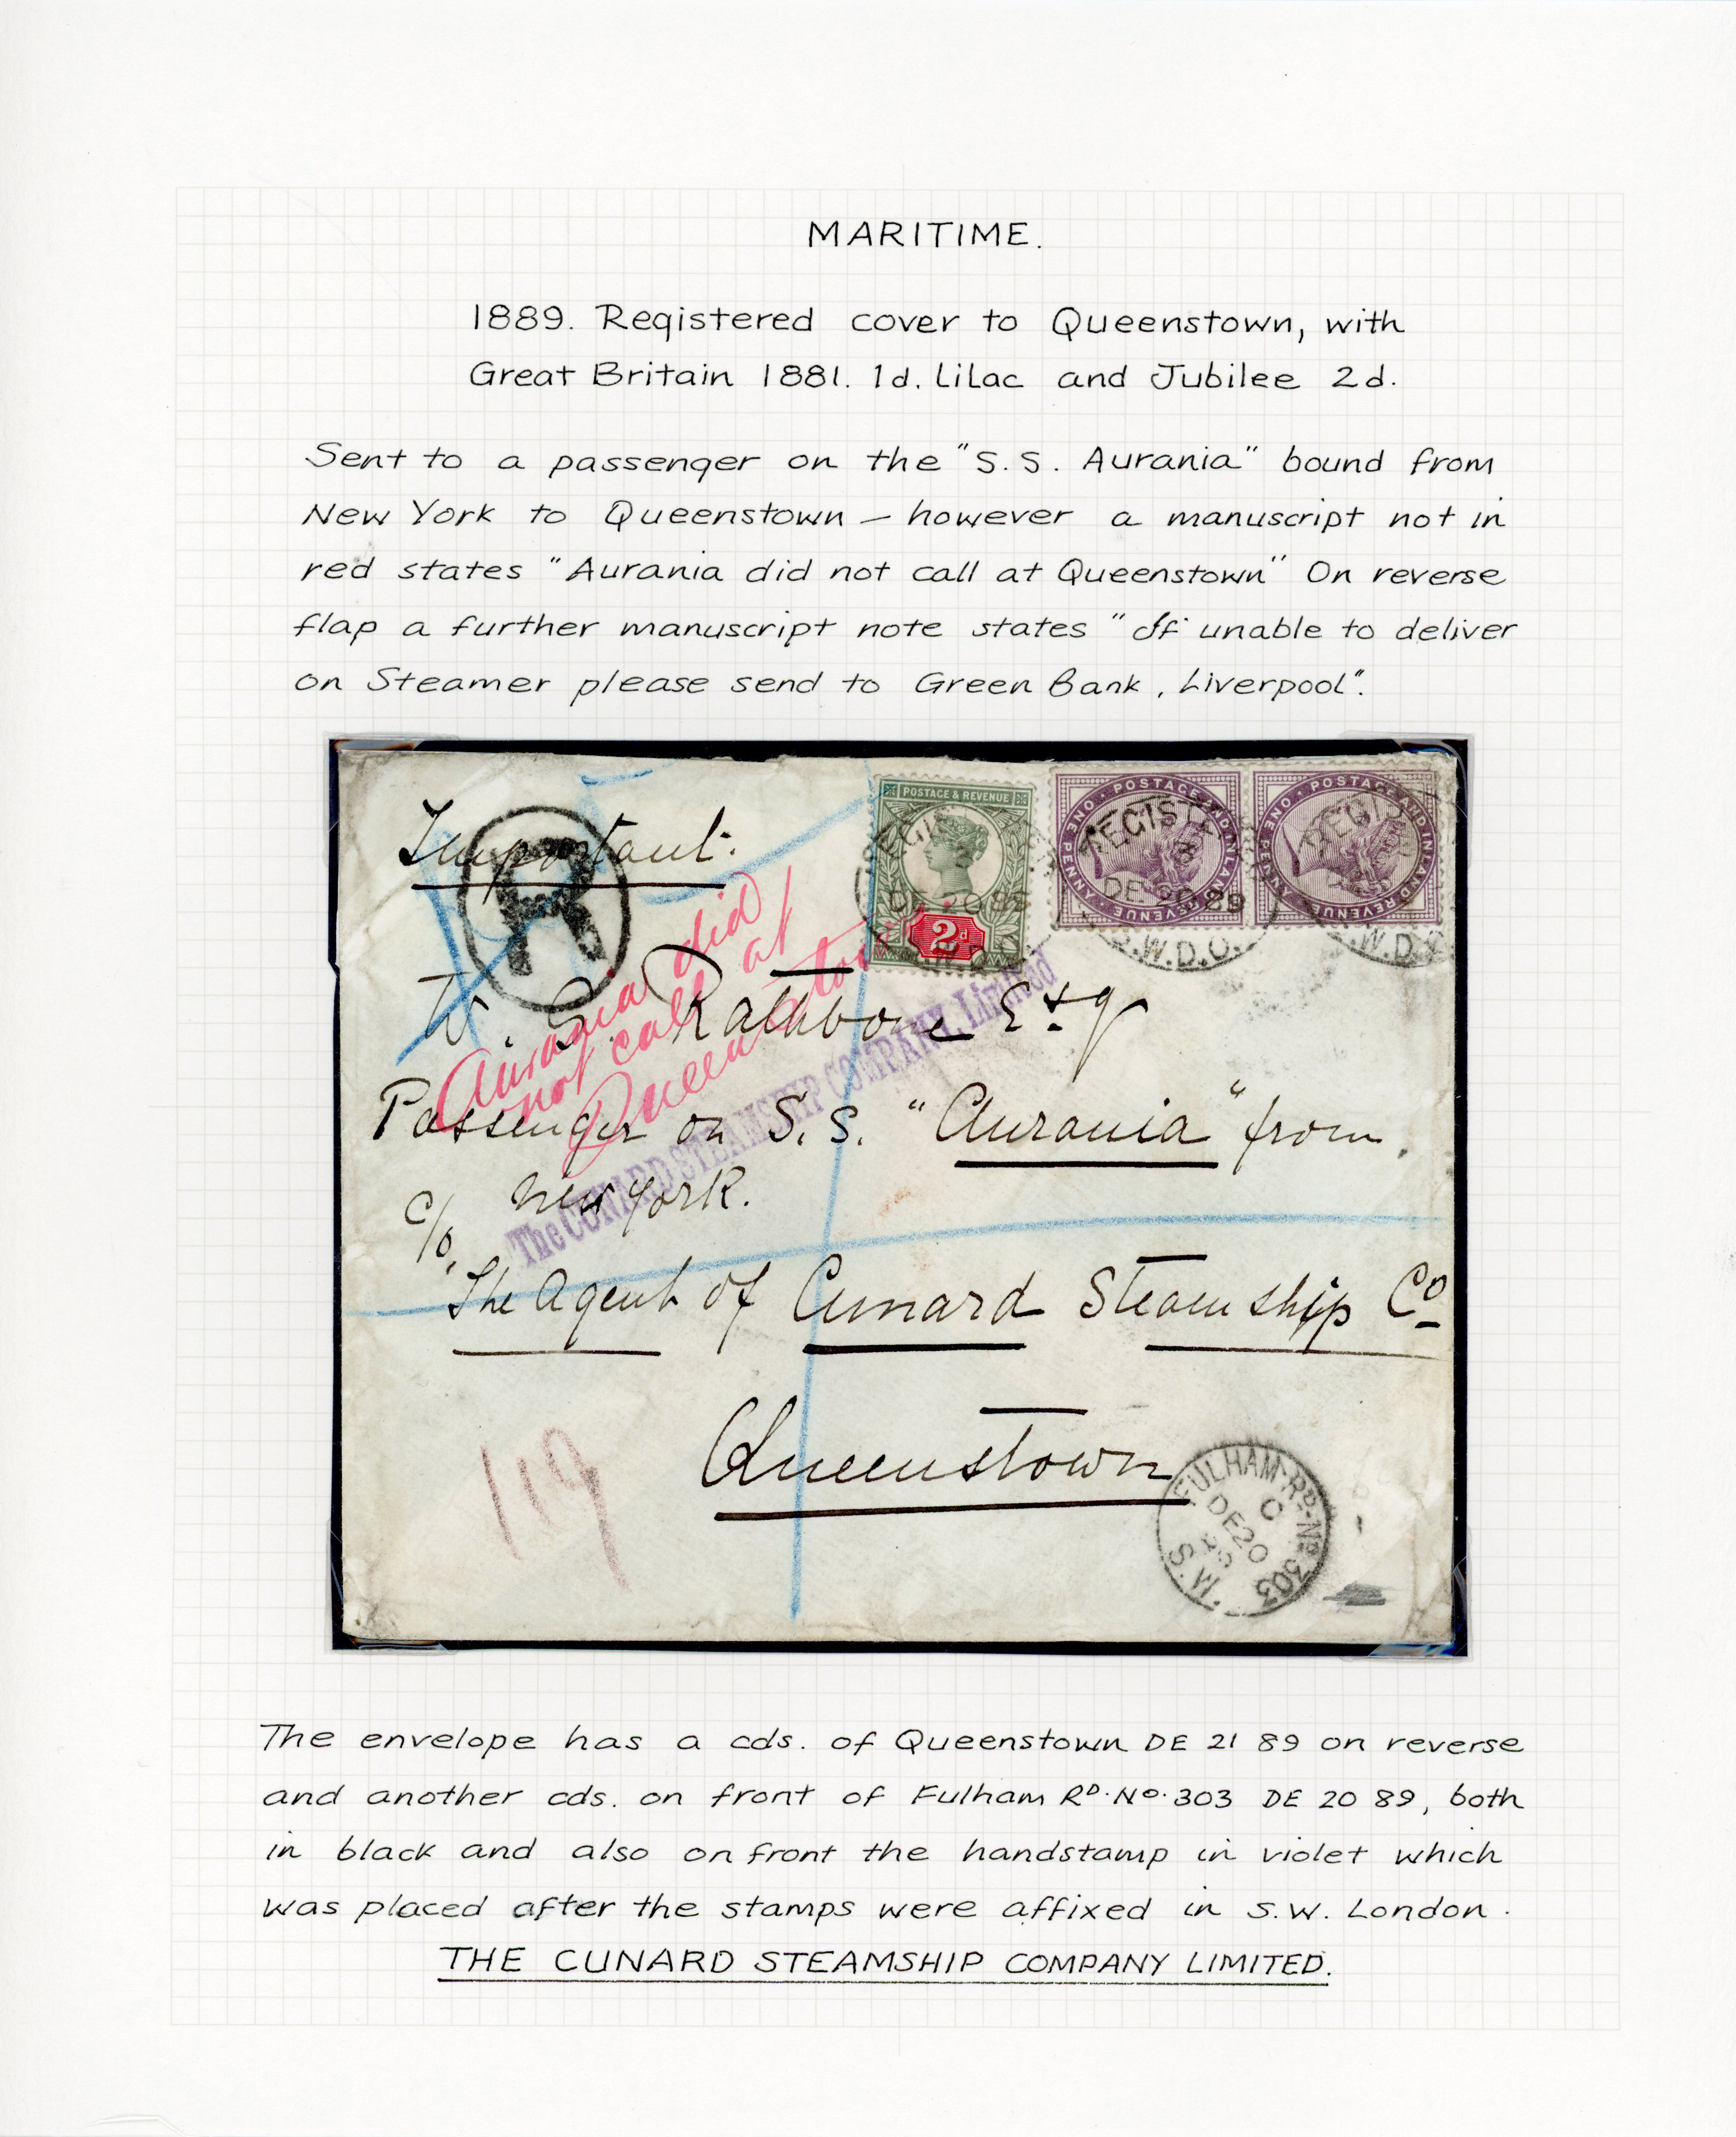 MARITIME.
1889. Registered cover to Queenstown, with
Great Britain 1881. 1d. Lilac and Jubilee 2d.
Sent to a passenger on the "S.S. Aurania" bound from
New York to Queenstown – however a manuscript not in
red states "Aurania did not call at Queenstown" On reverse
flap a further manuscript note states "If unable to deliver
on Steamer please send to Green Bank, Liverpool".
POSTAGE & REVENUE
2d
POSTAGE AND INLAND REVENUE ONE PENNY
POSTAGE AND INLAND REVENUE ONE PENNY
REGISTE
DE 20 89
S.W.D.O.
Important.
R
Aurania did
not call at
Queenstown
W. G. Rathbone Esq
The CUNARD STEAMSHIP COMPANY, Limited
Passenger on S.S. "Aurania" from
New York.
c/o
The Agent of Cunard Steamship Co
Queenstown
119
FULHAM-RD-No 303
C
DE 20
S.W.
The envelope has a cds. of Queenstown DE 21 89 on reverse
and another cds. on front of Fulham RD. No. 303 DE 20 89, both
in black and also on front the handstamp in violet which
was placed after the stamps were affixed in S.W. London.
THE CUNARD STEAMSHIP COMPANY LIMITED.